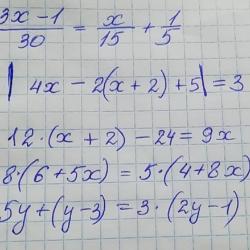 3x - 1/30 = x/15 + 1/5
| 4x - 2(x + 2) + 5 | = 3
12 · (x + 2) - 24 = 9x
8 · (6 + 5x) = 5 · (4 + 8x)
5y + (y - 3) = 3 · (2y - 1)